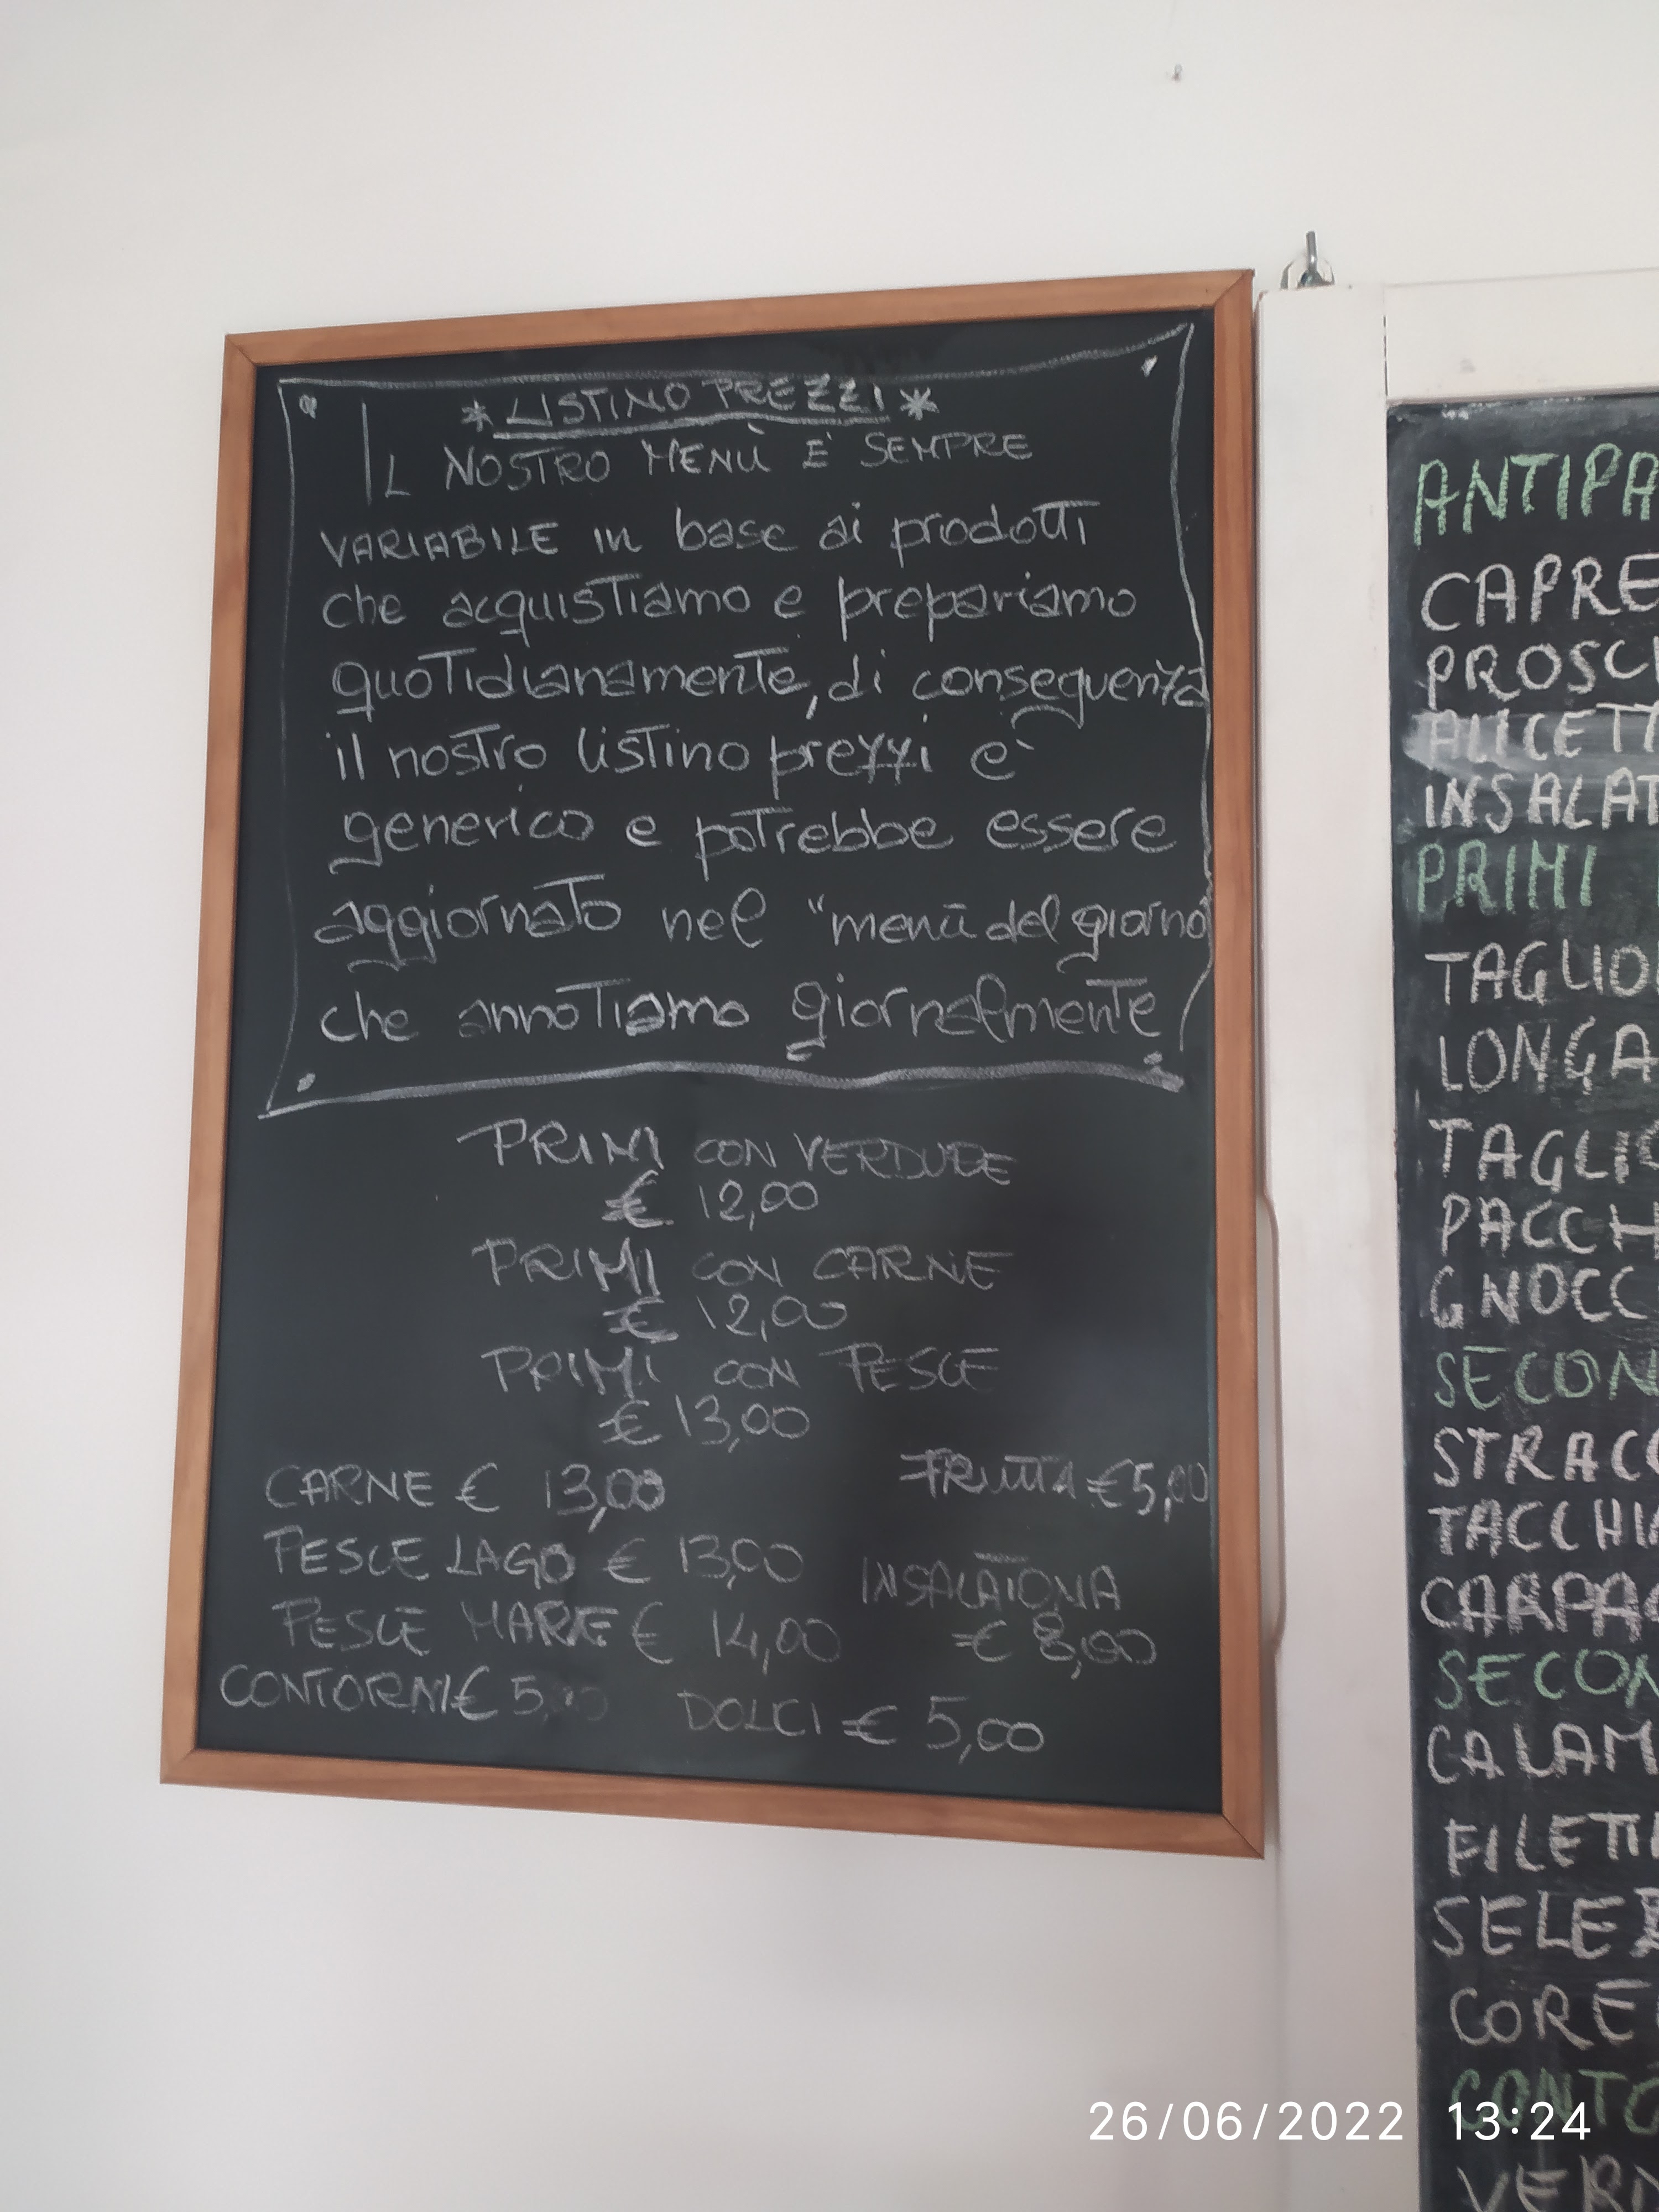 * LISTINO PREZZI *
IL NOSTRO MENÙ È SEMPRE
VARIABILE in base ai prodotti
che acquistiamo e prepariamo
quotidianamente, di conseguenza
il nostro listino prezzi è
generico e potrebbe essere
aggiornato nel "menù del giorno
che annotiamo giornalmente
PRIMI CON VERDURE
€ 12,00
PRIMI CON CARNE
€ 12,00
PRIMI CON PESCE
€ 13,00
CARNE € 13,00
FRUTTA € 5,00
PESCE LAGO € 13,00
INSALATONA
€ 8,00
PESCE MARE € 14,00
CONTORNI € 5,00
DOLCI € 5,00
ANTIPA
CAPRE
PROSCI
ALICETT
INSALAT
PRIMI
TAGLIO
LONGA
TAGLIO
PACCH
GNOCC
SECON
STRACC
TACCHI
CARPAC
SECON
CALAM
FILETT
SELE
CORE
CONTO
VERD
26/06/2022 13:24